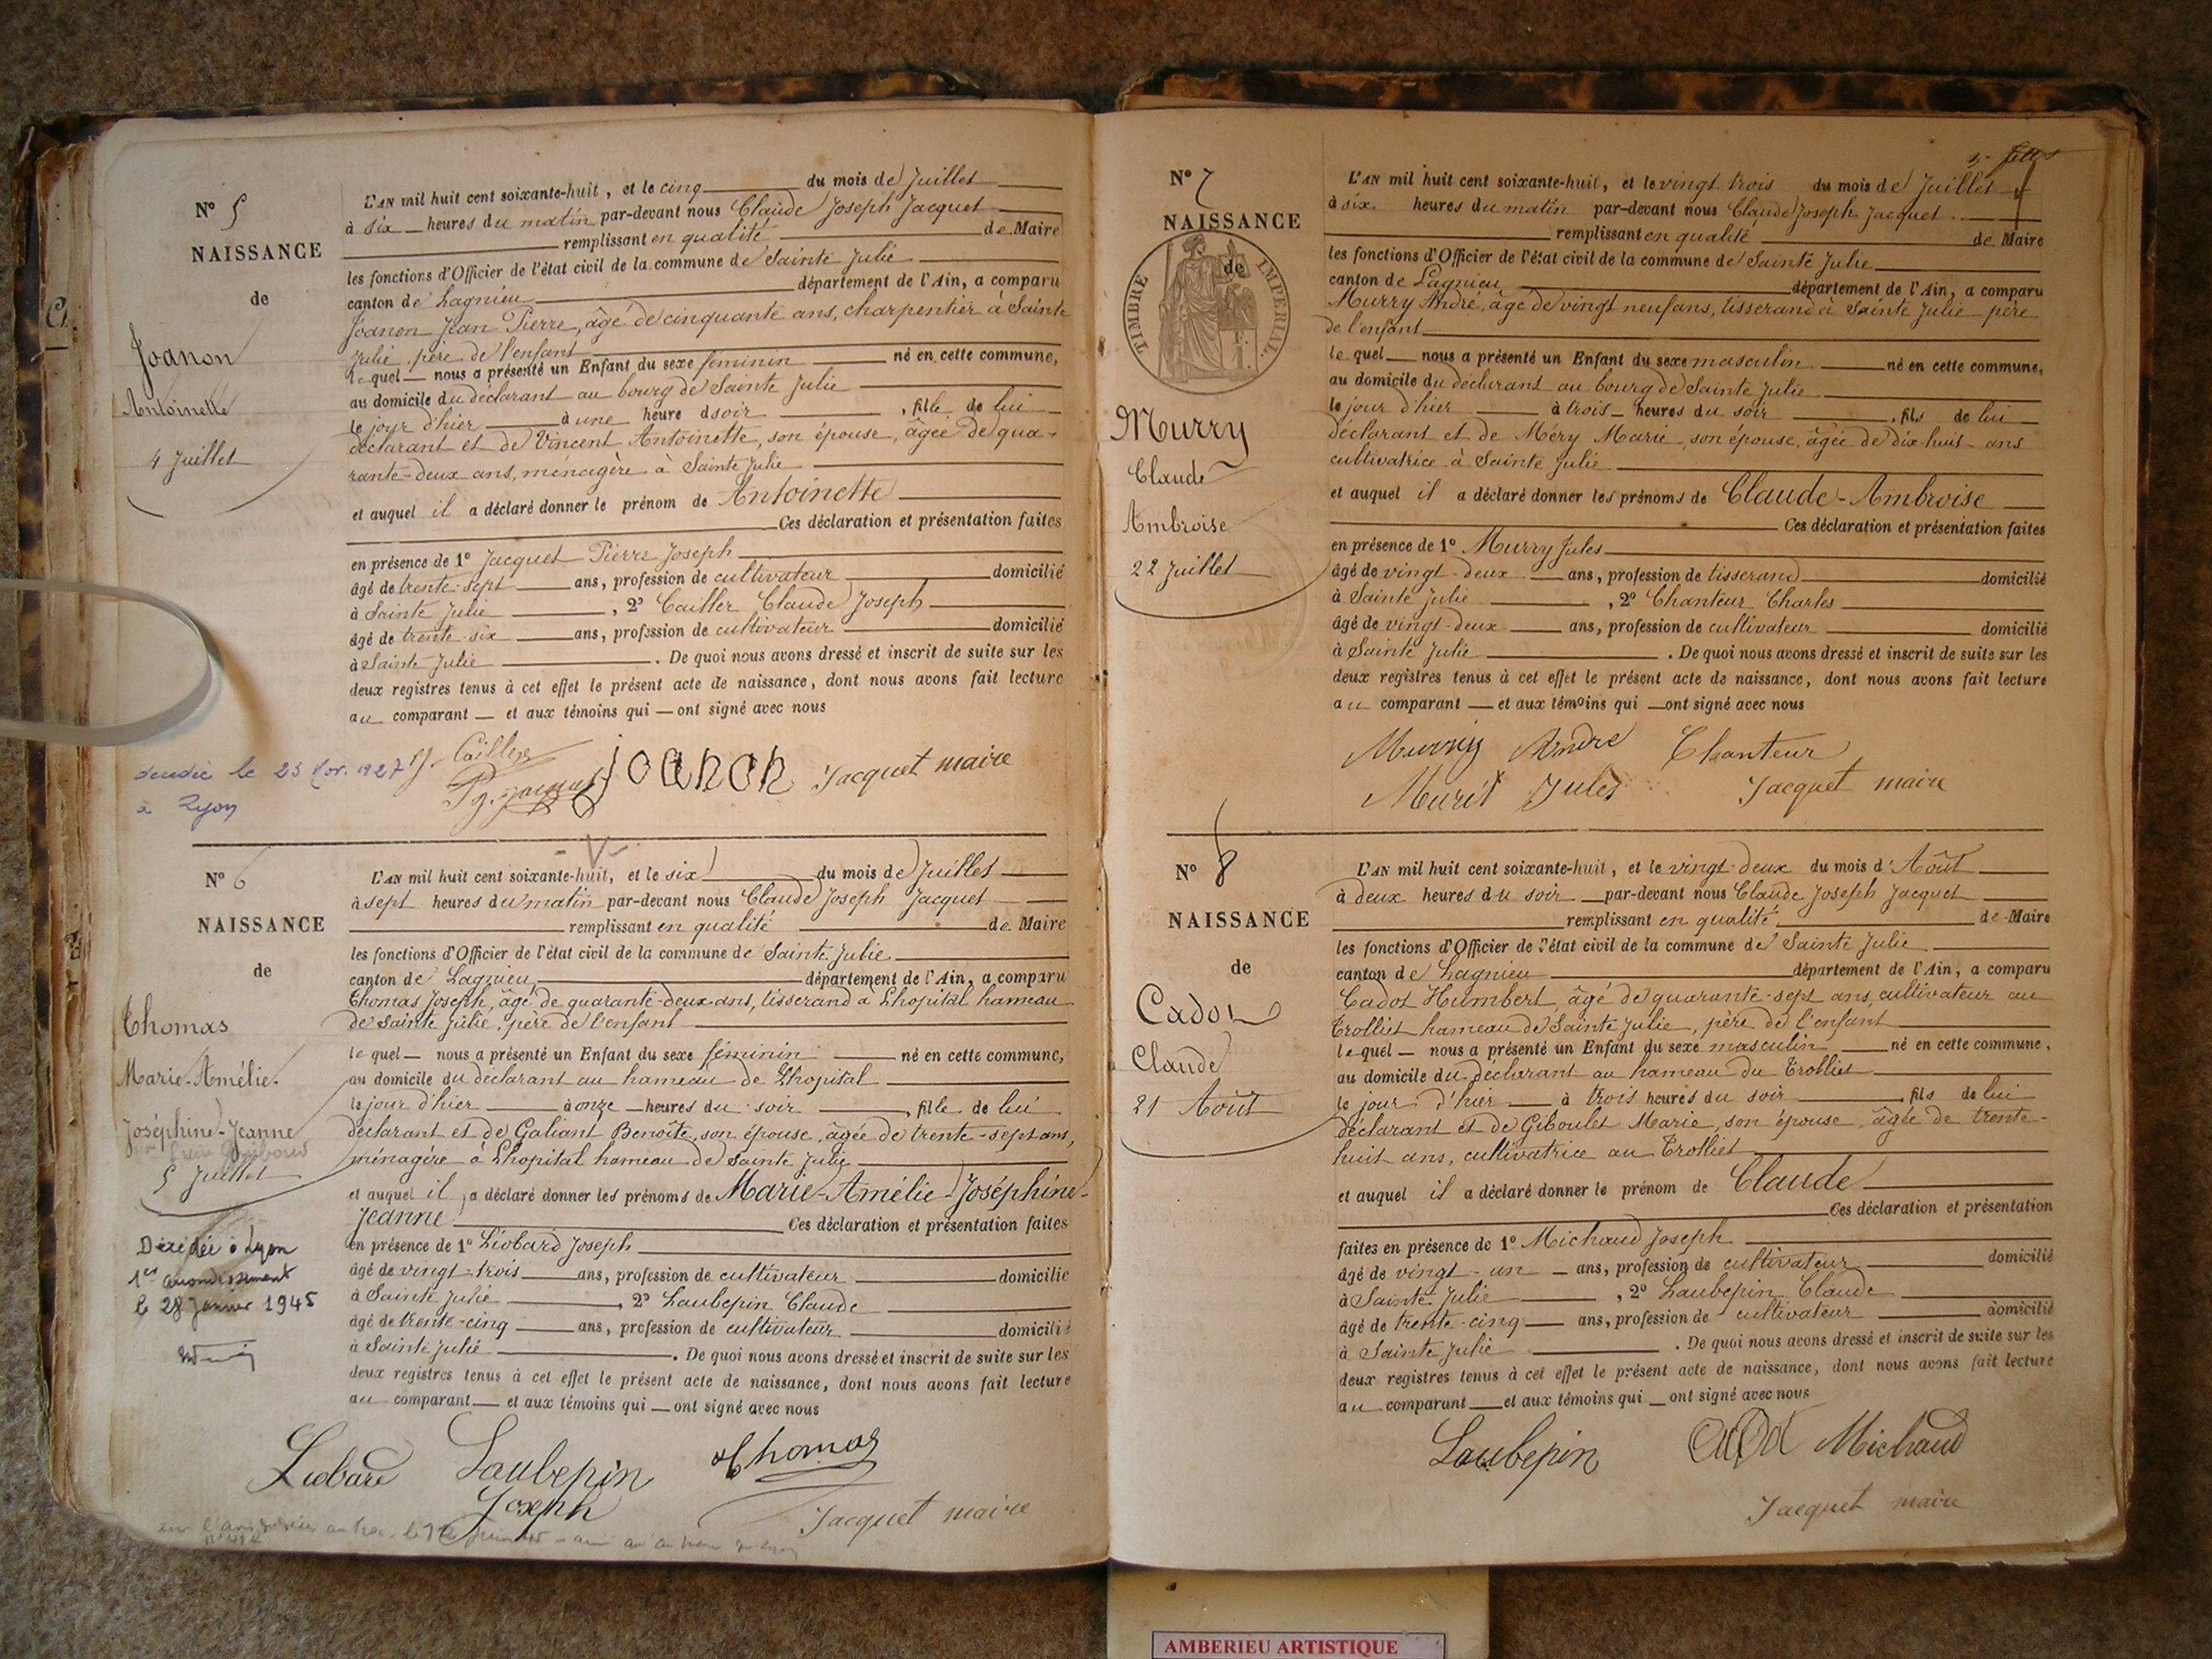 N° 5
NAISSANCE
de
Joanon
Antoinette
4 Juillet
L'AN mil huit cent soixante-huit, et le cinq du mois de Juillet
à six heures du matin par-devant nous Claude Joseph Jacquet
remplissant en qualité de Maire
les fonctions d'Officier de l'état civil de la commune de Sainte Julie
canton de Lagnieu département de l'Ain, a comparu
Joanon Jean Pierre, âgé de cinquante ans, charpentier à Sainte
Julie, père de l'enfant
lequel nous a présenté un Enfant du sexe féminin né en cette commune,
au domicile du déclarant au bourg de Sainte Julie
le jour d'hier à une heure d soir, fille de lui
déclarant et de Vincent Antoinette, son épouse, âgée de qua-
rante-deux ans, ménagère à Sainte Julie
et auquel il a déclaré donner le prénom de Antoinette
Ces déclaration et présentation faites
en présence de 1° Jacquet Pierre Joseph
âgé de trente-sept ans, profession de cultivateur domicilié
à Sainte Julie, 2° Cailler Claude Joseph
âgé de trente-six ans, profession de cultivateur domicilié
à Sainte Julie. De quoi nous avons dressé et inscrit de suite sur les
deux registres tenus à cet effet le présent acte de naissance, dont nous avons fait lecture
au comparant et aux témoins qui ont signé avec nous
Cailler
joanon Jacquet maire
le 23 1927
à Lyon
N° 6
NAISSANCE
de
Thomas
Marie-Amélie-
Joséphine-Jeanne
5 Juillet
Décédée à Lyon
1er arrondissement
le 28 Janvier 1945
L'AN mil huit cent soixante-huit, et le six du mois de Juillet
à sept heures du matin par-devant nous Claude Joseph Jacquet
remplissant en qualité de Maire
les fonctions d'Officier de l'état civil de la commune de Sainte Julie
canton de Lagnieu département de l'Ain, a comparu
Thomas Joseph, âgé de quarante-deux ans, tisserand à Lhopital hameau
de Sainte Julie, père de l'enfant
lequel nous a présenté un Enfant du sexe féminin né en cette commune,
au domicile du déclarant au hameau de Lhopital
le jour d'hier à onze heures du soir, fille de lui
déclarant et de Galiant Benoîte, son épouse, âgée de trente-sept ans,
ménagère à Lhopital hameau de Sainte Julie
et auquel il a déclaré donner les prénoms de Marie-Amélie-Joséphine-
Jeanne Ces déclaration et présentation faites
en présence de 1° Liobard Joseph
âgé de vingt-trois ans, profession de cultivateur domicilié
à Sainte Julie, 2° Laubepin Claude
âgé de trente-cinq ans, profession de cultivateur domicilié
à Sainte Julie. De quoi nous avons dressé et inscrit de suite sur les
deux registres tenus à cet effet le présent acte de naissance, dont nous avons fait lecture
au comparant et aux témoins qui ont signé avec nous
Liobard Laubepin Thomas
Joseph Jacquet maire
N° 7
NAISSANCE
de
TIMBRE IMPERIAL
Murry
Claude
Ambroise
22 Juillet
L'AN mil huit cent soixante-huit, et le vingt trois du mois de Juillet
à six heures du matin par-devant nous Claude Joseph Jacquet
remplissant en qualité de Maire
les fonctions d'Officier de l'état civil de la commune de Sainte Julie
canton de Lagnieu département de l'Ain, a comparu
Murry André, âgé de vingt neuf ans, tisserand à Sainte Julie père
de l'enfant
lequel nous a présenté un Enfant du sexe masculin né en cette commune,
au domicile du déclarant au bourg de Sainte Julie
le jour d'hier à trois heures du soir, fils de lui
déclarant et de Méry Marie, son épouse, âgée de dix-huit ans
cultivatrice à Sainte Julie
et auquel il a déclaré donner les prénoms de Claude-Ambroise
Ces déclaration et présentation faites
en présence de 1° Murry Jules
âgé de vingt-deux ans, profession de tisserand domicilié
à Sainte Julie, 2° Chanteur Charles
âgé de vingt-deux ans, profession de cultivateur domicilié
à Sainte Julie. De quoi nous avons dressé et inscrit de suite sur les
deux registres tenus à cet effet le présent acte de naissance, dont nous avons fait lecture
au comparant et aux témoins qui ont signé avec nous
Murry André Chanteur
Jules Jacquet maire
N° 8
NAISSANCE
de
Cadot
Claude
21 Août
L'AN mil huit cent soixante-huit, et le vingt-deux du mois d'Août
à deux heures du soir par-devant nous Claude Joseph Jacquet
remplissant en qualité de Maire
les fonctions d'Officier de l'état civil de la commune de Sainte Julie
canton de Lagnieu département de l'Ain, a comparu
Cadot Humbert, âgé de quarante-sept ans, cultivateur au
Trolliet hameau de Sainte Julie, père de l'enfant
lequel nous a présenté un Enfant du sexe masculin né en cette commune,
au domicile du déclarant au hameau du Trolliet
le jour d'hier à trois heures du soir fils de lui
déclarant et de Giboulet Marie, son épouse, âgée de trente-
huit ans, cultivatrice au Trolliet
et auquel il a déclaré donner le prénom de Claude
Ces déclaration et présentation
faites en présence de 1° Michaud Joseph
âgé de vingt-un ans, profession de cultivateur domicilié
à Sainte Julie, 2° Laubepin Claude
âgé de trente-cinq ans, profession de cultivateur domicilié
à Sainte Julie. De quoi nous avons dressé et inscrit de suite sur les
deux registres tenus à cet effet le présent acte de naissance, dont nous avons fait lecture
au comparant et aux témoins qui ont signé avec nous
Laubepin Cadot Michaud
Jacquet maire
AMBERIEU ARTISTIQUE